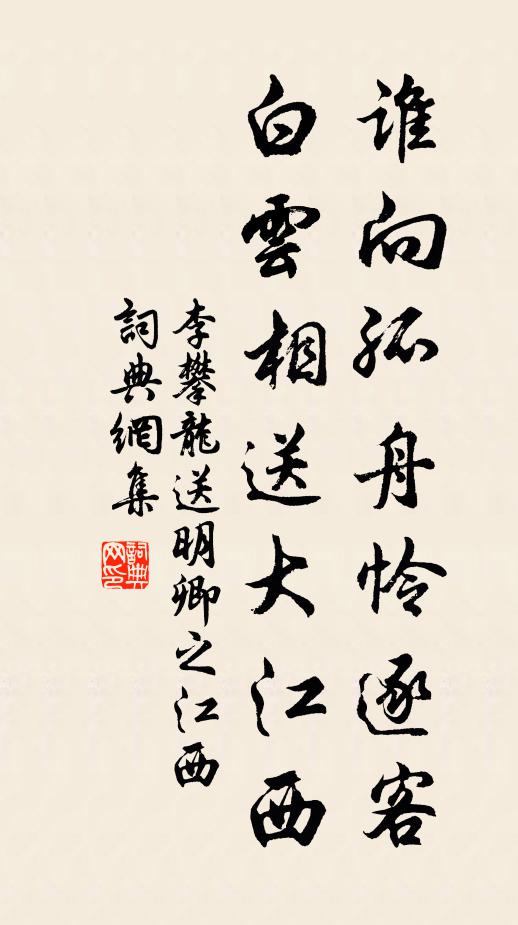 誰向孤舟憐逐客
白雲相送大江西
李攀龍送明卿之江西
詞典網集
詞典网印